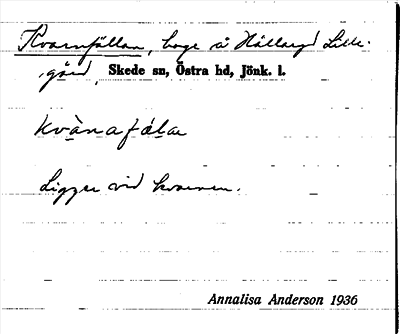 Kvarnfållan, hage å Hållaryd Lille-
gård, Skede sn, Östra hd, Jönk. l.
kvànafålaɷ
Ligger vid kvarnen.
Annalisa Anderson 1936